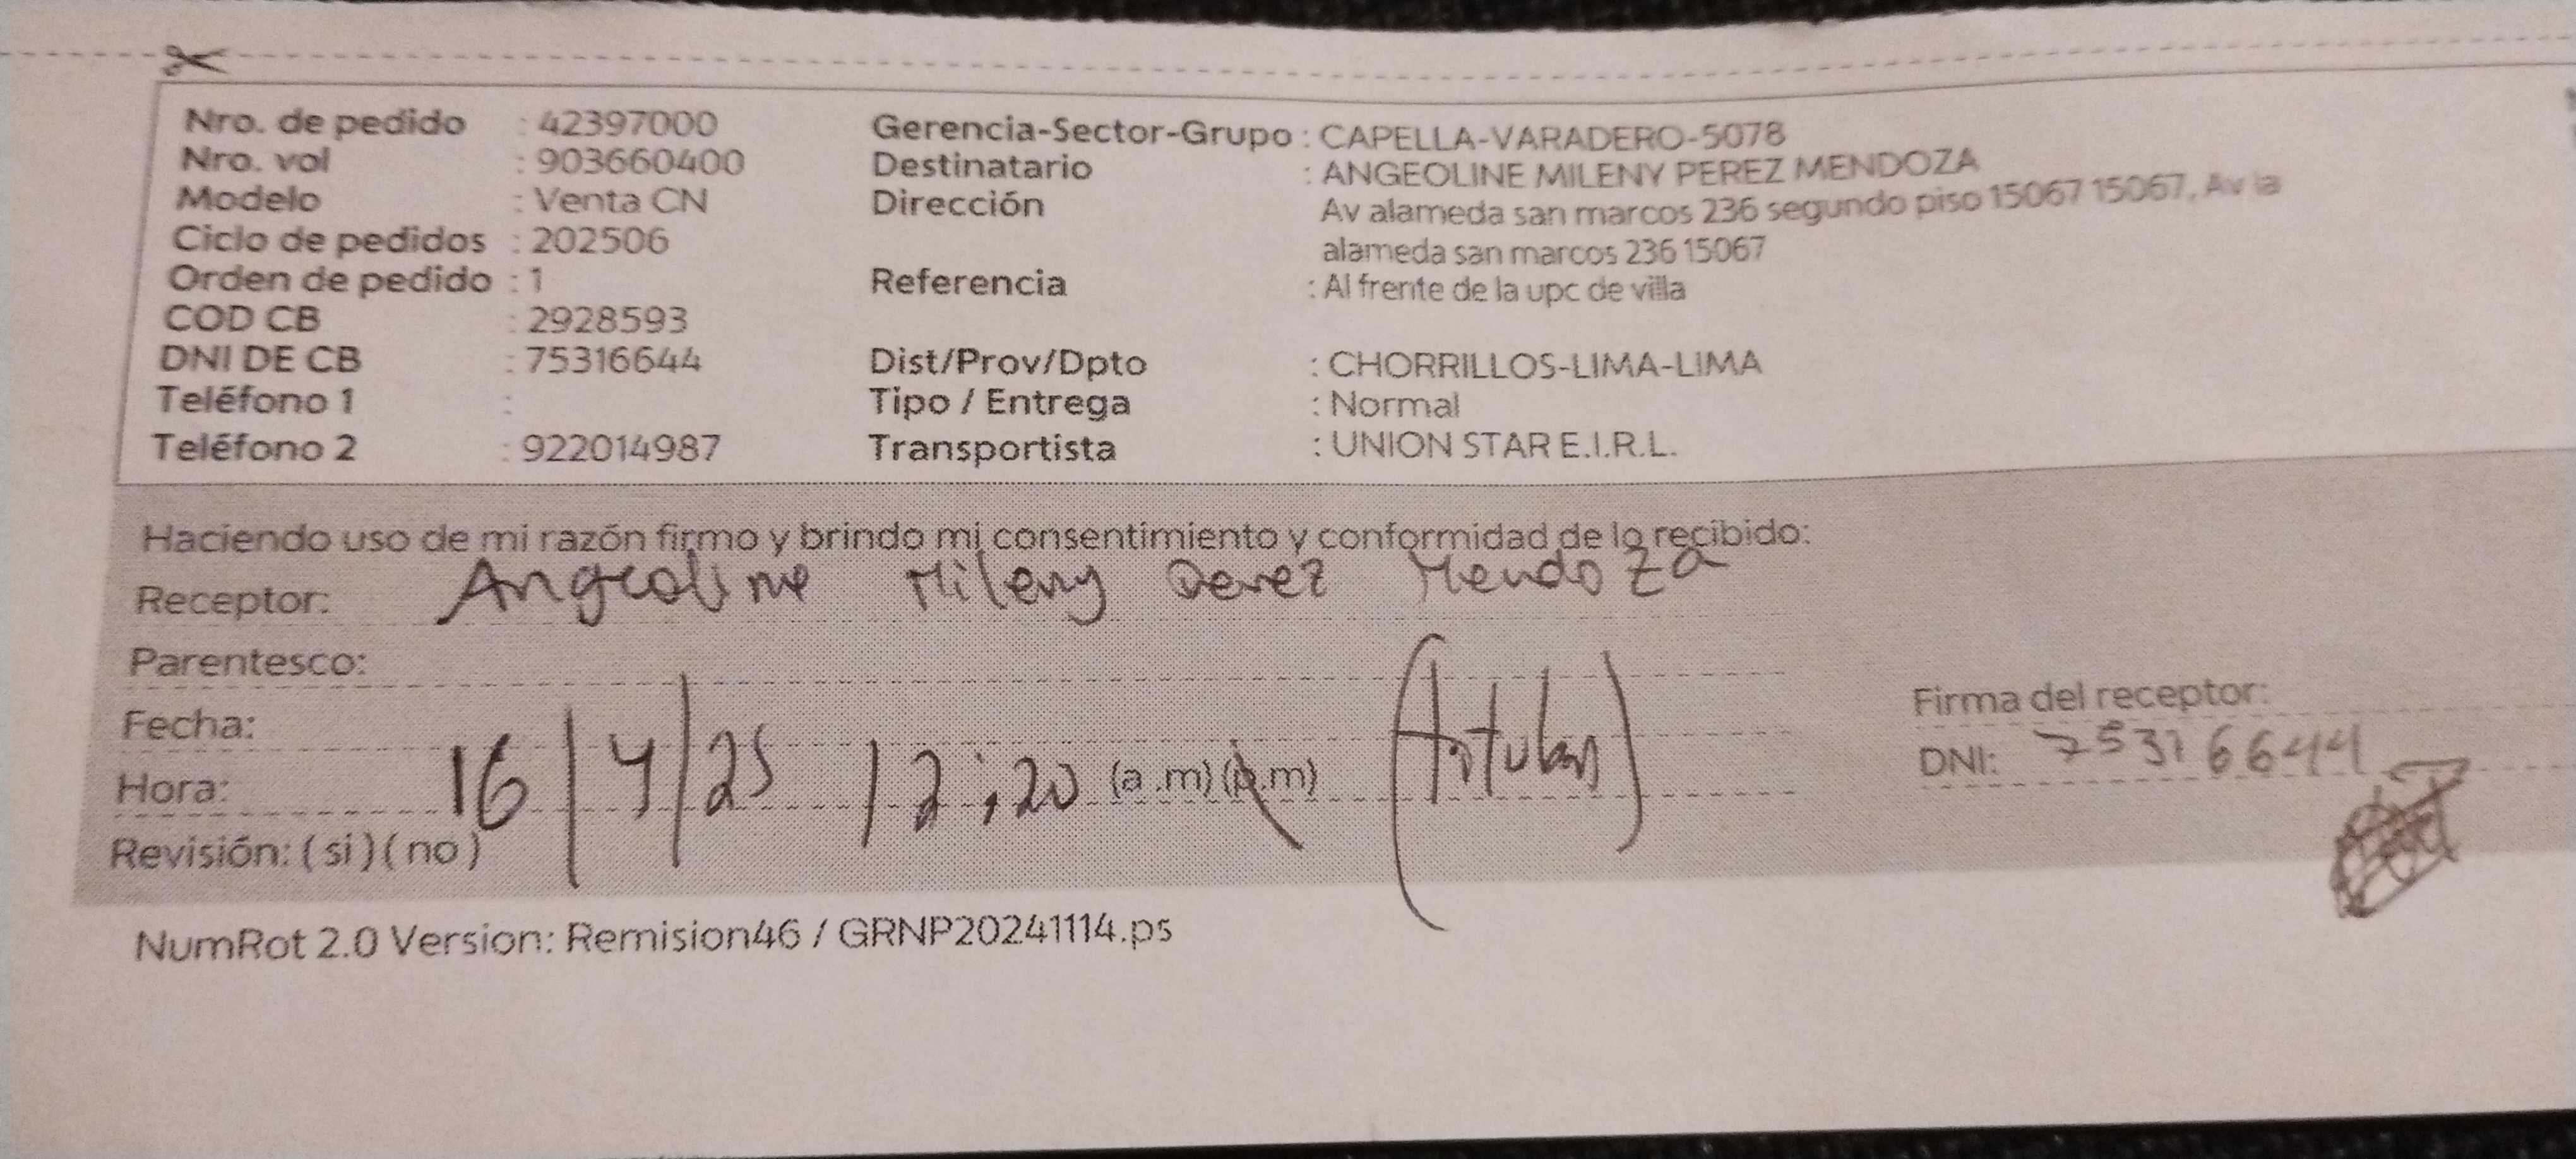 Nro. de pedido : 42397000
Nro. vol : 903660400
Modelo : Venta CN
Ciclo de pedidos : 202506
Orden de pedido : 1
COD CB : 2928593
DNI DE CB : 75316644
Teléfono 1 :
Teléfono 2 : 922014987
Gerencia-Sector-Grupo : CAPELLA-VARADERO-5078
Destinatario : ANGEOLINE MILENY PEREZ MENDOZA
Dirección Av alameda san marcos 236 segundo piso 15067 15067, Av la
alameda san marcos 236 15067
Referencia : Al frente de la upc de villa
Dist/Prov/Dpto : CHORRILLOS-LIMA-LIMA
Tipo / Entrega : Normal
Transportista : UNION STAR E.I.R.L.
Haciendo uso de mi razón firmo y brindo mi consentimiento y conformidad de lo recibido:
Receptor: Angeoline Mileny Perez Mendoza
Parentesco:
Fecha:
Hora: 16/4/25 12:20 (a.m)(p.m)
Revisión: (si)(no)
Firma del receptor:
DNI: 75316644
NumRot 2.0 Version: Remision46 / GRNP20241114.ps